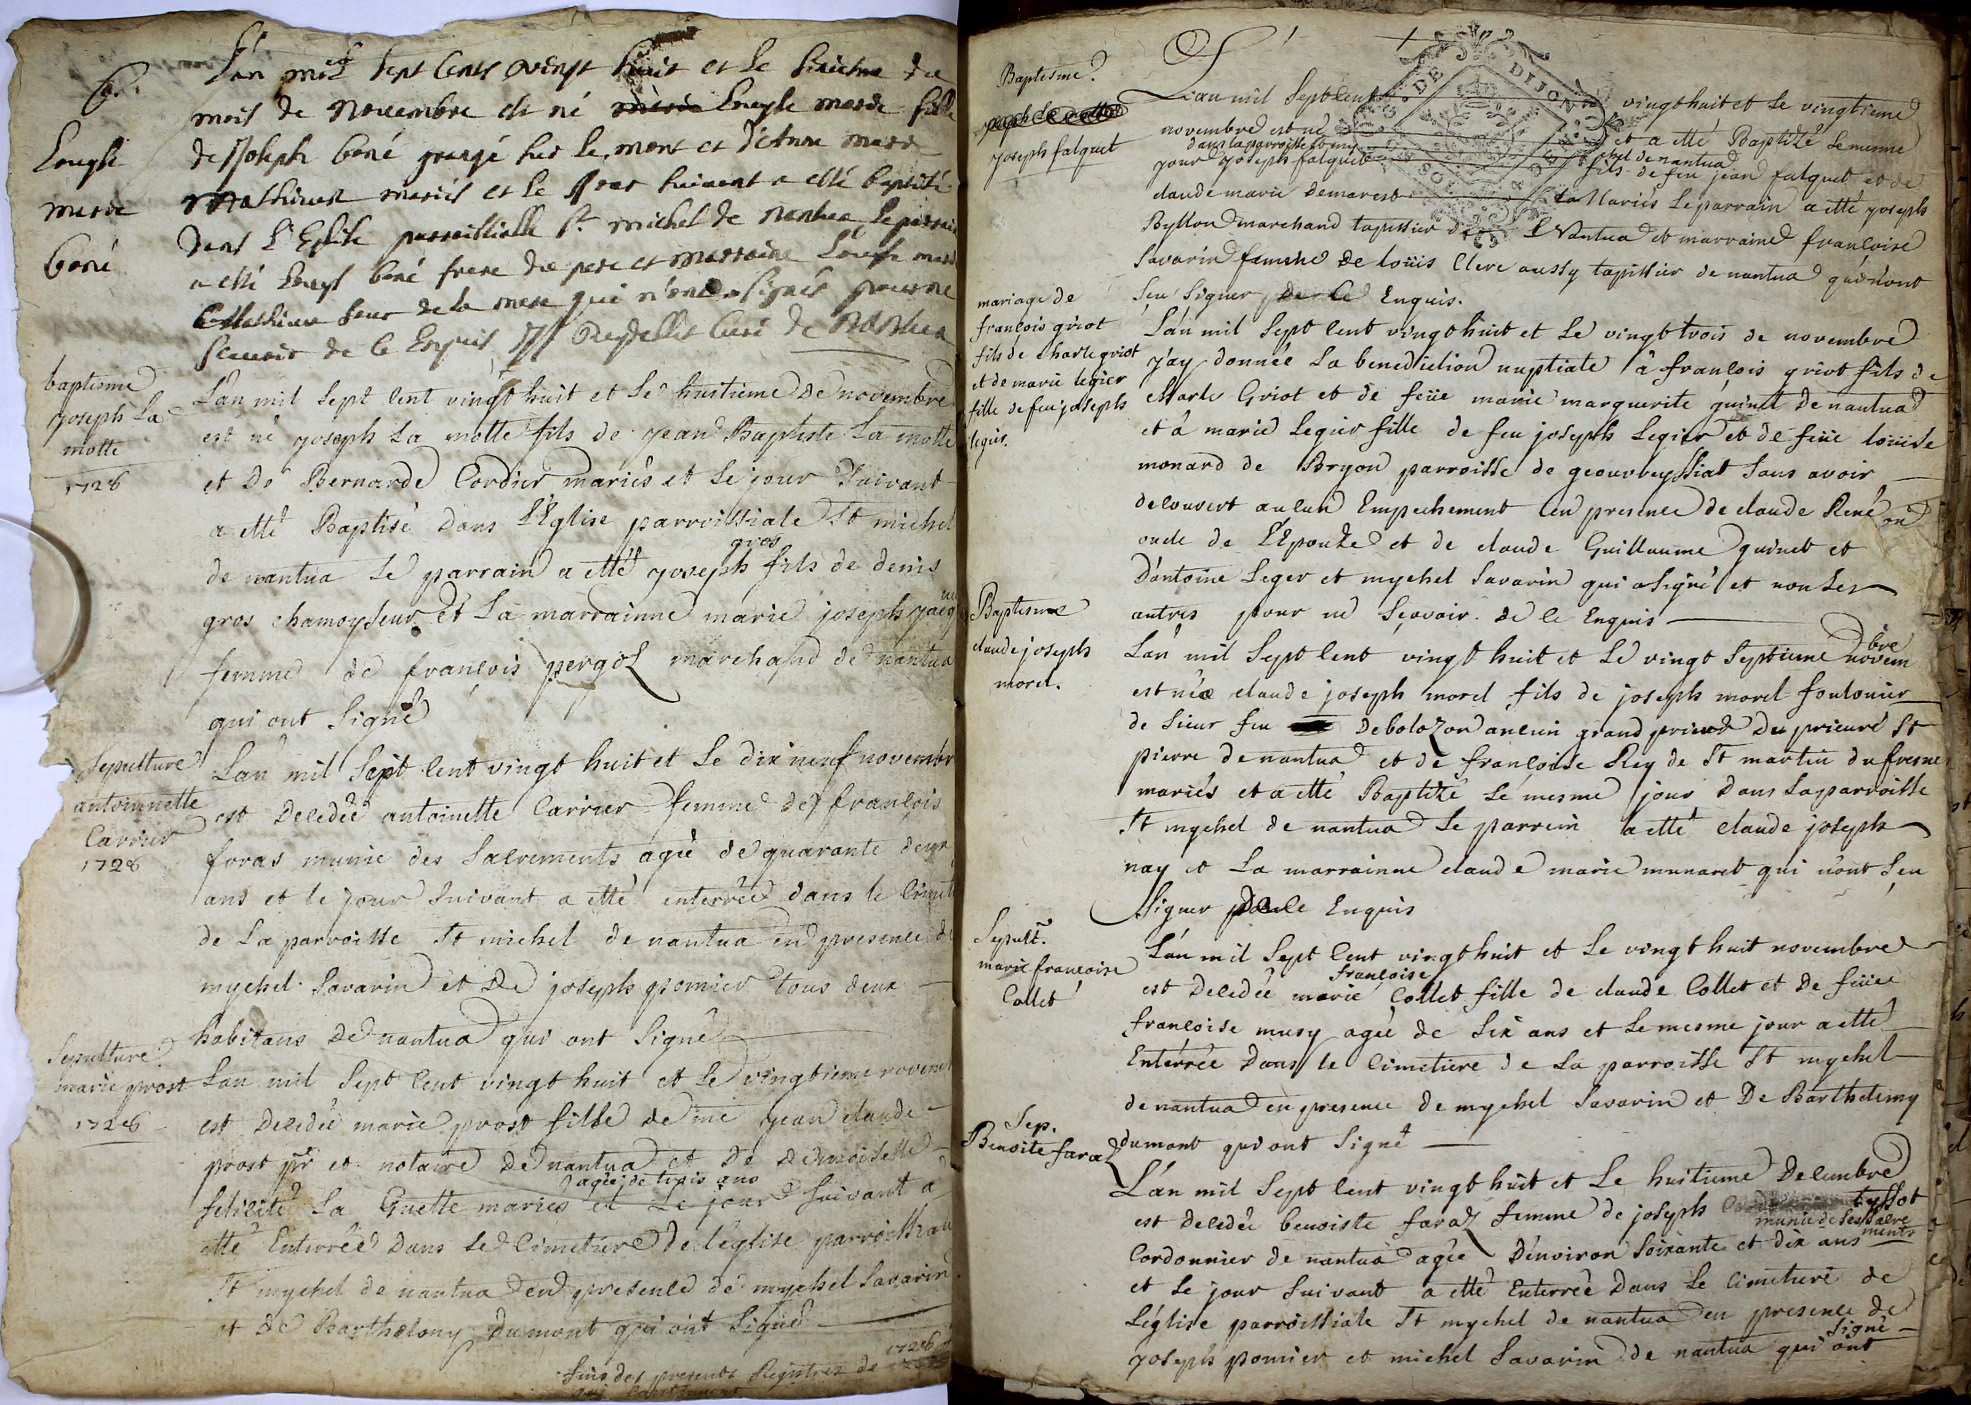 L'an mil sept cents vingt huit et le sixième du
mois de novembre est né fille
de Joseph boné grangé sur le mont et d'Anne
Mathieu mariés et le jour suivant a esté baptisé
dans l'Eglise parroissialle St. michel de nantua le parrain
a esté boné frere du pere et marraine
Mathieu seur de la mere qui n'ont signés pour ne
scavoir de ce Enquis curé de Nantua
boné
baptisme
joseph La
motte
1728
L'an mil sept cent vingt huit et le huitieme de novembre
est né joseph La motte fils de jean Baptiste La motte
et De Bernarde Cordier mariés et le jour suivant
a etté Baptisé dans l'Eglise parroissiale St michel
gros
de nantua Le parrain a etté joseph fils de denis
gros chamoyseur et La marrainne marie joseph
femme de francois pergod marchand de nantua
qui ont signé
Sepulture
antoinnette
Carrier
1728
L'an mil sept cent vingt huit et le dix neuf novembr
est Decedée antoinette Carrier femme de francois
foras munie des sacrements agée de quarante deux
ans et le jour suivant a etté enterrée dans le Cimeti
de La parroisse St michel de nantua en presence de
mychel Savarin et De joseph pomier tous deux
habitans de nantua qui ont signé
Sepulture
marie prost
1728
L'an mil sept cent vingt huit et le vingtieme novem
est Decedée marie prost fille de me jean claude
prost pr et notaire de nantua et De Demoiselle
agée de trois ans
felicité La Guette mariés et Le jour suivant a
etté Enterrée Dans Le Cimetiere De l'eglise parroissial
St mychel de nantua en presence de mychel Savarin
et de Barthelomy Dumont qui ont signé
1728
fin des presents Registres de
Baptisme
joseph falquet
L'an mil sept cent vingt huit et le vingtieme
novembre est né et a etté Baptizé le mesme
dans la parroisse St mychel de nantua
jour joseph falquet fils de feu jean falquet et de
claude marie demarest mariés Le parrain a etté joseph
Bytton marchand tapissier de Nantua et marraine francoise
Savarin femme de Loüis Clerc aussy tapissier de nantua qui n'ont
sçu signer de ce Enquis.
mariage de
francois griot
fils de charle griot
et de marie legier
fille de feu joseph
legier.
L'an mil sept cent vingt huit et le vingt trois de novembre
j'ay donnée La benediction nuptiale à francois griot fils de
charle Griot et de feüe marie marguerite guinet de nantua
et à marie Legier fille de feu joseph Legier et de feüe loüise
monard de Bryon parroisse de geourbeyssiat sans avoir
decouvert aucun Empechement en presence de claude René on
oncle de L'Epouze et de claude Guillaume guinet et
D'antoine Leger et mychel Savarin qui a signé et non Les
autres pour ne sçavoir de ce Enquis
Baptisme
claude joseph
morel.
bre
L'an mil sept cent vingt huit et le vingt septieme novem
est née claude joseph morel fils de joseph morel
de sieur feu Debolozon ancien grand prieur du prieuré St
pierre de nantua et de francoise Rey de St martin du fresne
mariés et a etté Baptizé Le mesme jour Dans La parroisse
St mychel de nantua Le parrein a etté claude joseph
nay et La marrainne claude marie munaret qui n'ont sçu
signer de ce Enquis
Sepult.
marie francoise
Collet
L'an mil sept cent vingt huit et Le vingt huit novembre
francoise
est Decedée marie Collet fille de claude Collet et De feüe
francoise musy agée de six ans et Le mesme jour a etté
Enterrée Dans le Cimetiere de La parroisse St mychel
de nantua en presence de mychel Savarin et De Barthelemy
dumont qui ont signé
Sep.
Benoite faraz
L'an mil sept cent vingt huit et Le huitieme Decembre
est Decedée benoiste faraz femme de joseph tyssot
munie de ses sacre
ments
Cordonnier de nantua agée D'environ soixante et dix ans
et Le jour suivant a etté Enterrée Dans Le Cimetiere de
L'église parroissiale St mychel de nantua en presence de
signé
joseph pomier et michel Savarin de nantua qui ont